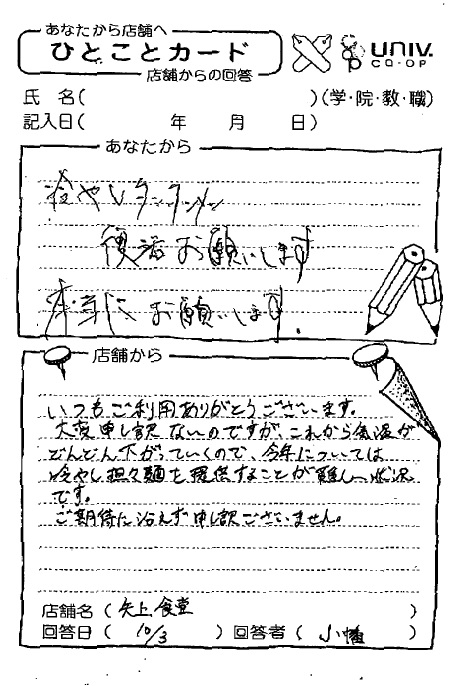 あなたから店舗へ
ひとことカード
店舗からの回答
UNIV.
CO-OP
氏 名( )(学・院・教・職)
記入日( 年 月 日)
あなたから
冷やしタンタンメン
復活お願いします
本当にお願いします.
店舗から
いつもご利用ありがとうございます。
大変申し訳ないのですが、これから気温が
どんどん下がっていくので、今年については
冷やし担々麺を提供することが難しい状況
です。
ご期待に沿えず申し訳ございません。
店舗名(矢上食堂 )
回答日( 10/3 )回答者( 小幡 )